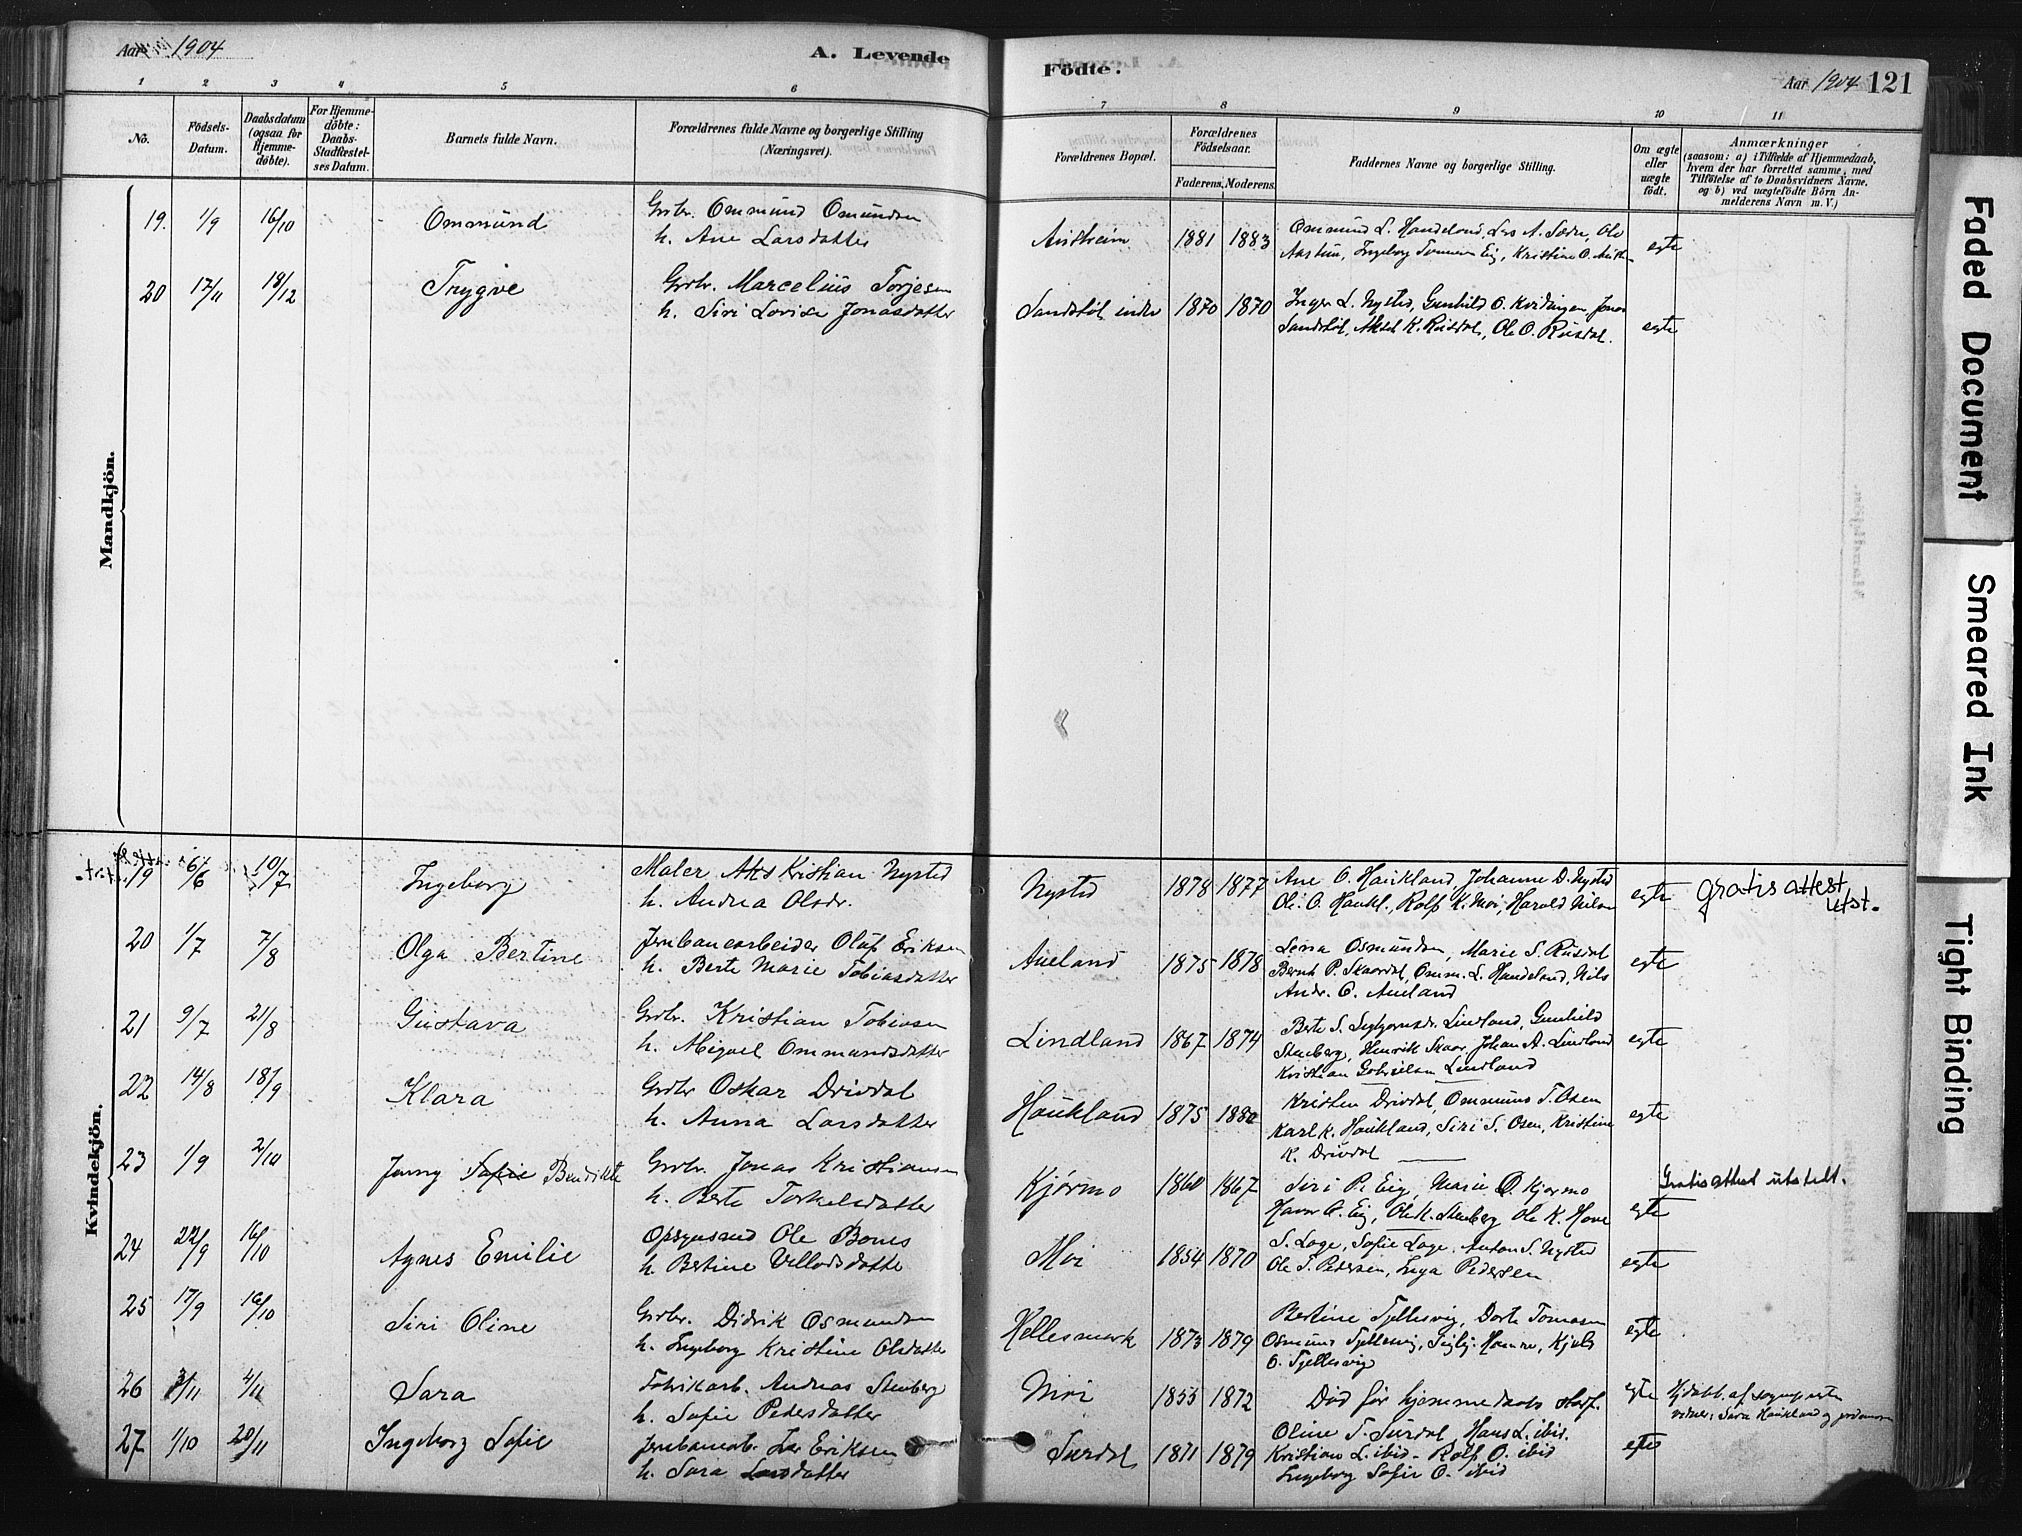 Aar 1904
A. Levende
Födte.
Aar 1904 121
1 2 3 4 5 6 7 8 9 10 11
No.
Födsels-
Datum.
Daabsdatum
(ogsaa for
Hjemme-
døbte).
For Hjemme-
døbte:
Daabs-
Stadfæstel-
ses Datum.
Barnets fulde Navn.
Forældrenes fulde Navne og borgerlige Stilling
(Næringsvei).
Forældrenes Bopæl.
Forældrenes
Födselsaar.
Faderens. Moderens.
Faddernes Navne og borgerlige Stilling.
Om ægte
eller
uægte
født.
Anmærkninger
(saasom: a) i Tilfælde af Hjemmedaab,
hvem der har forrettet samme, med
Tilföielse af to Daabsvidners Navne,
og b) ved uægtefödte Börn An-
melderens Navn m. V.)
Mandkjön.
19. 1/9 16/10 Ommund
Grbr. Ommund Omundsen
h. Ane Larsdatter
1881 1883
Ommund L. Handeland, Lars A. Sædre, Ole
egte
20 17/11 18/12 Trygve
Grbr. Marcelius Torjesen
h. Siri Lovise Jonasdatter
Sandstøl indre 1870 1870
Inger L. Nysted, Gunhild O. Kvidingen Jonas
Sandstøl, Aksel K. Rusdal, Ole O. Rusdal.
egte
Kvindekjön.
19 6/6 10/7 Ingeborg
Maler Aks Kristian Nysted
h. Andrea Olsdr.
Nysted 1878 1877
Ane O. Haukland, Johanne D. Nysted
Ole O. Haukl., Rolf K. Moi, Harald Nilsen
egte
gratis attest
utst.
20 1/7 7/8 Olga Bertine
Jernbanearbeider Oluf Eriksen
h. Berte Marie Tobiasdatter
Aueland 1875 1878
Lena Osmundsen, Marie S. Rusdal
Bernh P. Skaardal, Omm. L. Handeland, Nils
Andr. O. Aueland
egte
21 9/7 21/8 Gustava
Grbr. Kristian Tobiasen
h. Abigael Ommundsdatter
Lindland 1867 1874
Berte S. Sigbjørnsdr. Lindland, Gunhild
Stenberg, Henrik Skaar, Johan A. Lindland
Kristian Gabrielsen Lindland
egte
22 14/8 18/9 Klara
Grbr Oskar Drivdal
h. Anna Larsdatter
Haukland 1875 1880
Kristen Drivdal, Ommund T. Osen
Karl K. Haukland, Siri S. Osen, Kristine
K. Drivdal
egte
23 1/9 2/10 Jenny Sofie Bendikte
Grbr. Jonas Kristiansen
h. Berte Torkelsdatter
Kjørmo 1860 1867
Siri P. Eig, Marie O. Kjørmo
Havor O. Eig, Ole K. Stenberg Ole K. Hove
egte
Gratis attest utstelt.
24 22/9 16/10 Agnes Emilie
Opsynsmd Ole Bones
h. Bertine Vellovsdatte
Moi 1854 1870
S. Lage, Sofie Lage, Anton S. Nysted
Ole T. Pedersen, Inga Pedersen
egte
25 17/9 16/10 Siri Oline
Grbr. Didrik Osmundsen
h. Ingeborg Kristine Olsdatter
Hellesmark 1873 1879
Bertine Tjellesvig, Dorte Tomasen
Osmund Tjellesvig, Sigbj. Hamre, Kjels
O. Tjellesvig
egte
26 3/11 4/11 Sara
Fabrikarb. Andreas Stenberg
h. Sofie Pedersdatter
Moi 1855 1872
Død før hjemmedaabs stadf.
egte
Hjdøbt. af sognepresten
vidner: Sara Haukland og jordmoren
27 1/10 20/11 Ingeborg Sofie
Jernbanearb. Lar Eriksen
h. Sara Larsdatter
Surdal 1871 1879
Oline T. Surdal, Hans L. ibid.
Kristians L. ibid - Rolf O. ibid
Ingeborg Sofie O. ibid
egte
Faded Document
Smeared Ink
Tight Binding